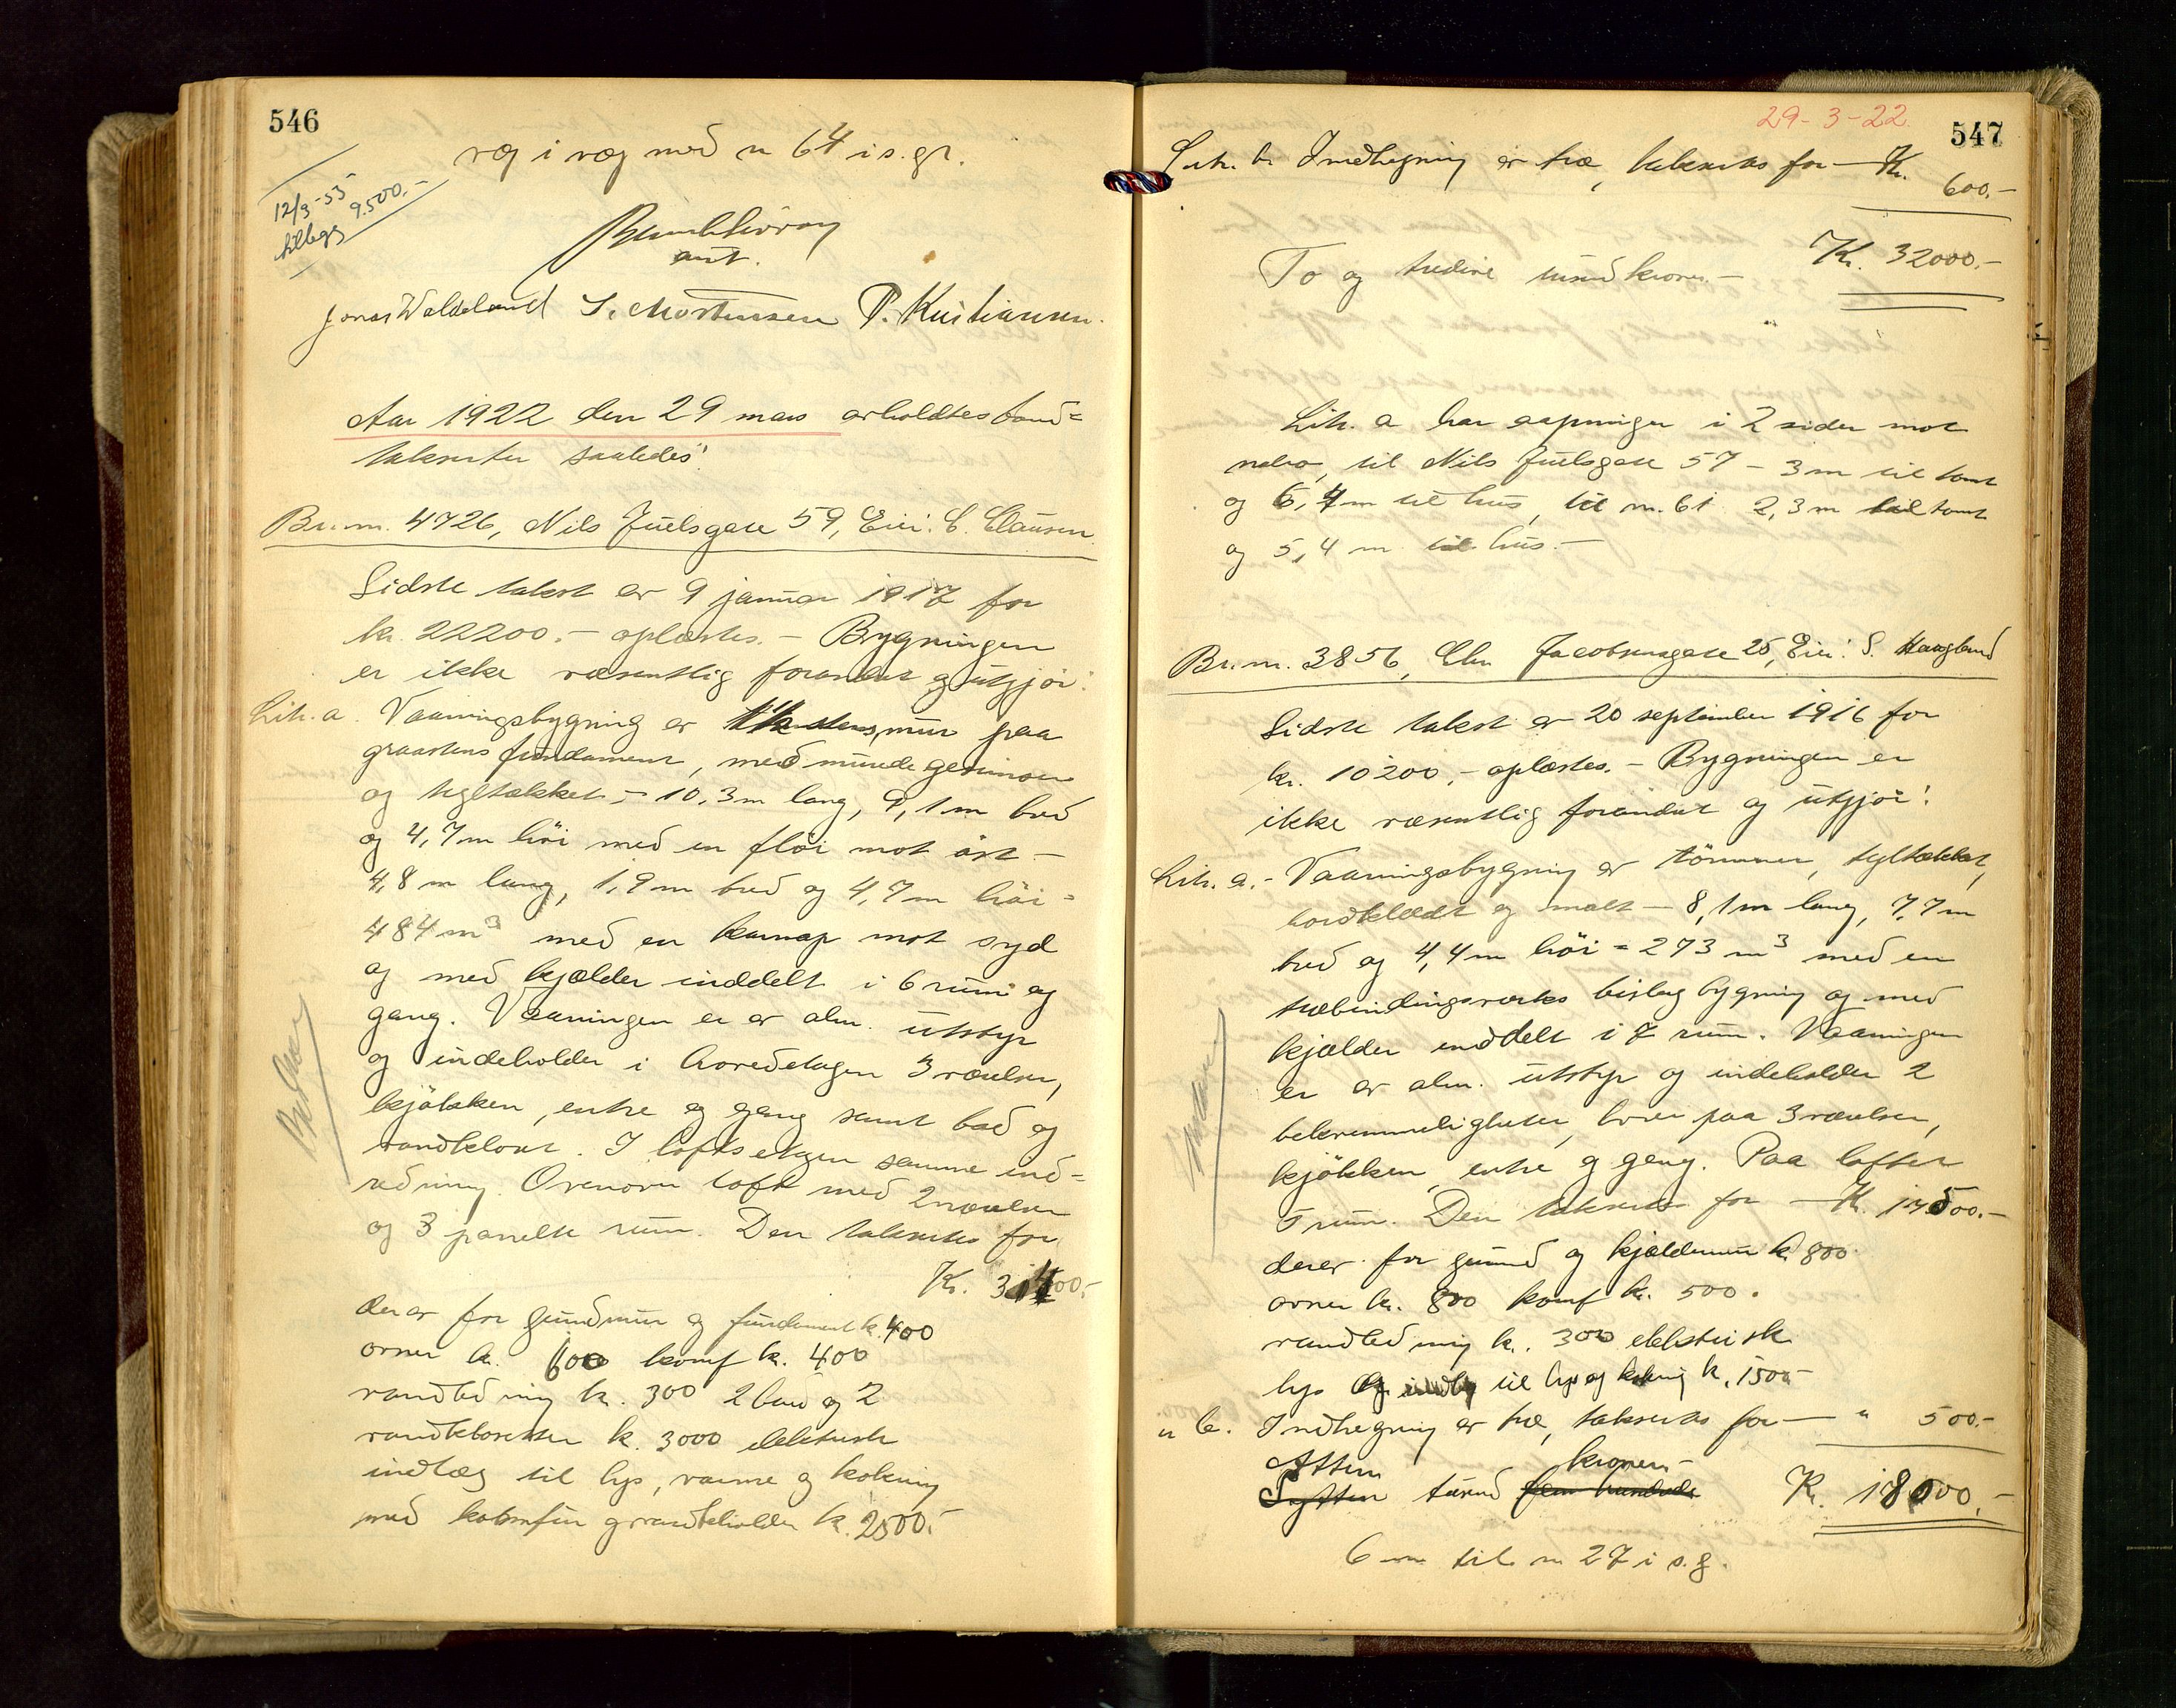 546
væg i væg med n 64 i s. gt.
12/3-55
9.500.-
tillegg
Jonas Waldeland S. Mortensen P. Kristiansen.
Aar 1922 den 29 mars avholdtes brand=
taksater saaledes:
Br. nr. 4726, Nils Juelsgate 59, Eier: C. Clausen
Sidste takst er 9 januar 1917 for
kr. 22200.- oplæstes. - Bygningen
er ikke væsentlig forandret og utgjør:
Litr. a. Vaaningsbygning av mur paa
graastens fundament, med murede gesimser
og tegltækket - 10,3 m lang, 9,1 m bred
og 4,7 m høi med en fløi mot øst -
4,8 m lang, 1,9 m bred og 4,7 m høi =
484 m³ med en karnap mot syd
og med kjælder inddelt i 6 rum og
gang. Vaaningen er av alm. utstyr
og indeholder i hovedetagen 3 værelser,
kjøkken, entre og gang samt bad og
vandkloset. I loftsetagen samme ind=
redning. Ovenover loft med 2 værelser
og 3 panelte rum. Den takseres for
Kr. 31400.-
derav for grundmur og fundament k. 400
ovner kr. 600 komf k. 400
vandledning k. 300 2 bad og 2
vandklosetter k. 3000 elektrisk
indlæg til lys, varme og kokning
med komfur og vandbeholder k. 2500.-
29-3-22
547
Litr. b. Indhegning av træ, takseres for - Kr. 600.-
Kr. 32000.-
To og tredive tusind kroner. -
Litr. a har aapninger i 2 sider mot
nabo, til Nils Juelsgate 57 - 3 m til tomt
og 6,4 m til hus, til nr. 61 2,3 m til tomt
og 5,4 m til hus. -
Br. nr. 3856, Chr Jacobsensgate 25, Eier: S. Haagland
Sidste takst er 20 september 1916 for
kr. 10200,- oplæstes. - Bygningen er
ikke væsentlig forandret og utgjør:
Litr. a. - Vaaningsbygning av tømmer, tegltækket,
bordklædt og malt - 8,1 m lang, 7,7 m
bred og 4,4 m høi = 273 m³ med en
træbindingsverks bislag bygning og med
kjælder inddelt i 7 rum. Vaaningen
er av alm. utstyr og indeholder 2
bekvemmeligheter, hver paa 3 værelser,
kjøkken, entre og gang. Paa loftet
5 rum. Den takseres for - Kr. 17500.-
derav for grund og kjældermur k. 800
ovner kr. 800 komf k. 500.
vandledning k. 300 elektrisk
lys til lys og kokning k. 1500-
" b. Indhegning av træ, takseres for - " 500.-
Atten kroner-
Sytten tusind fem hundrede Kr. 18000.-
6 m til nr 27 i s. g.